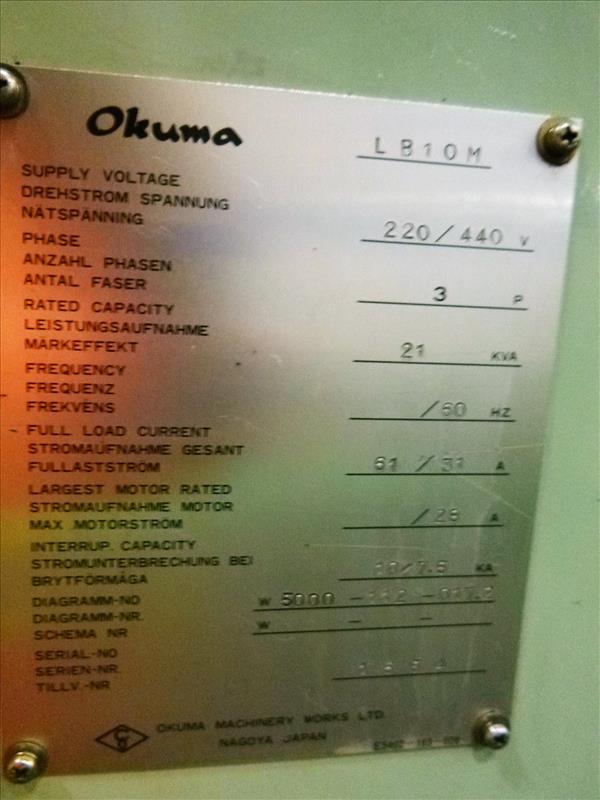 Okuma
LB10M
SUPPLY VOLTAGE
DREHSTROM SPANNUNG
NÄTSPÄNNING
220/440 V
PHASE
ANZAHL PHASEN
ANTAL FASER
3 P
RATED CAPACITY
LEISTUNGSAUFNAHME
MÄRKEFFEKT
21 KVA
FREQUENCY
FREQUENZ
FREKVENS
/60 HZ
FULL LOAD CURRENT
STROMAUFNAHME GESANT
FULLASTSTRÖM
61 / 31 A
LARGEST MOTOR RATED
STROMAUFNAHME MOTOR
MAX MOTORSTRÖM
A
INTERRUP. CAPACITY
STROMUNTERBRECHUNG BEI
BRYTFÖRMÅGA
10/7.5 KA
DIAGRAMM-NO
DIAGRAMM-NR.
SCHEMA NR
W 5000
W - -
SERIAL-NO
SERIEN-NR.
TILLV.-NR
OKUMA MACHINERY WORKS LTD.
NAGOYA JAPAN